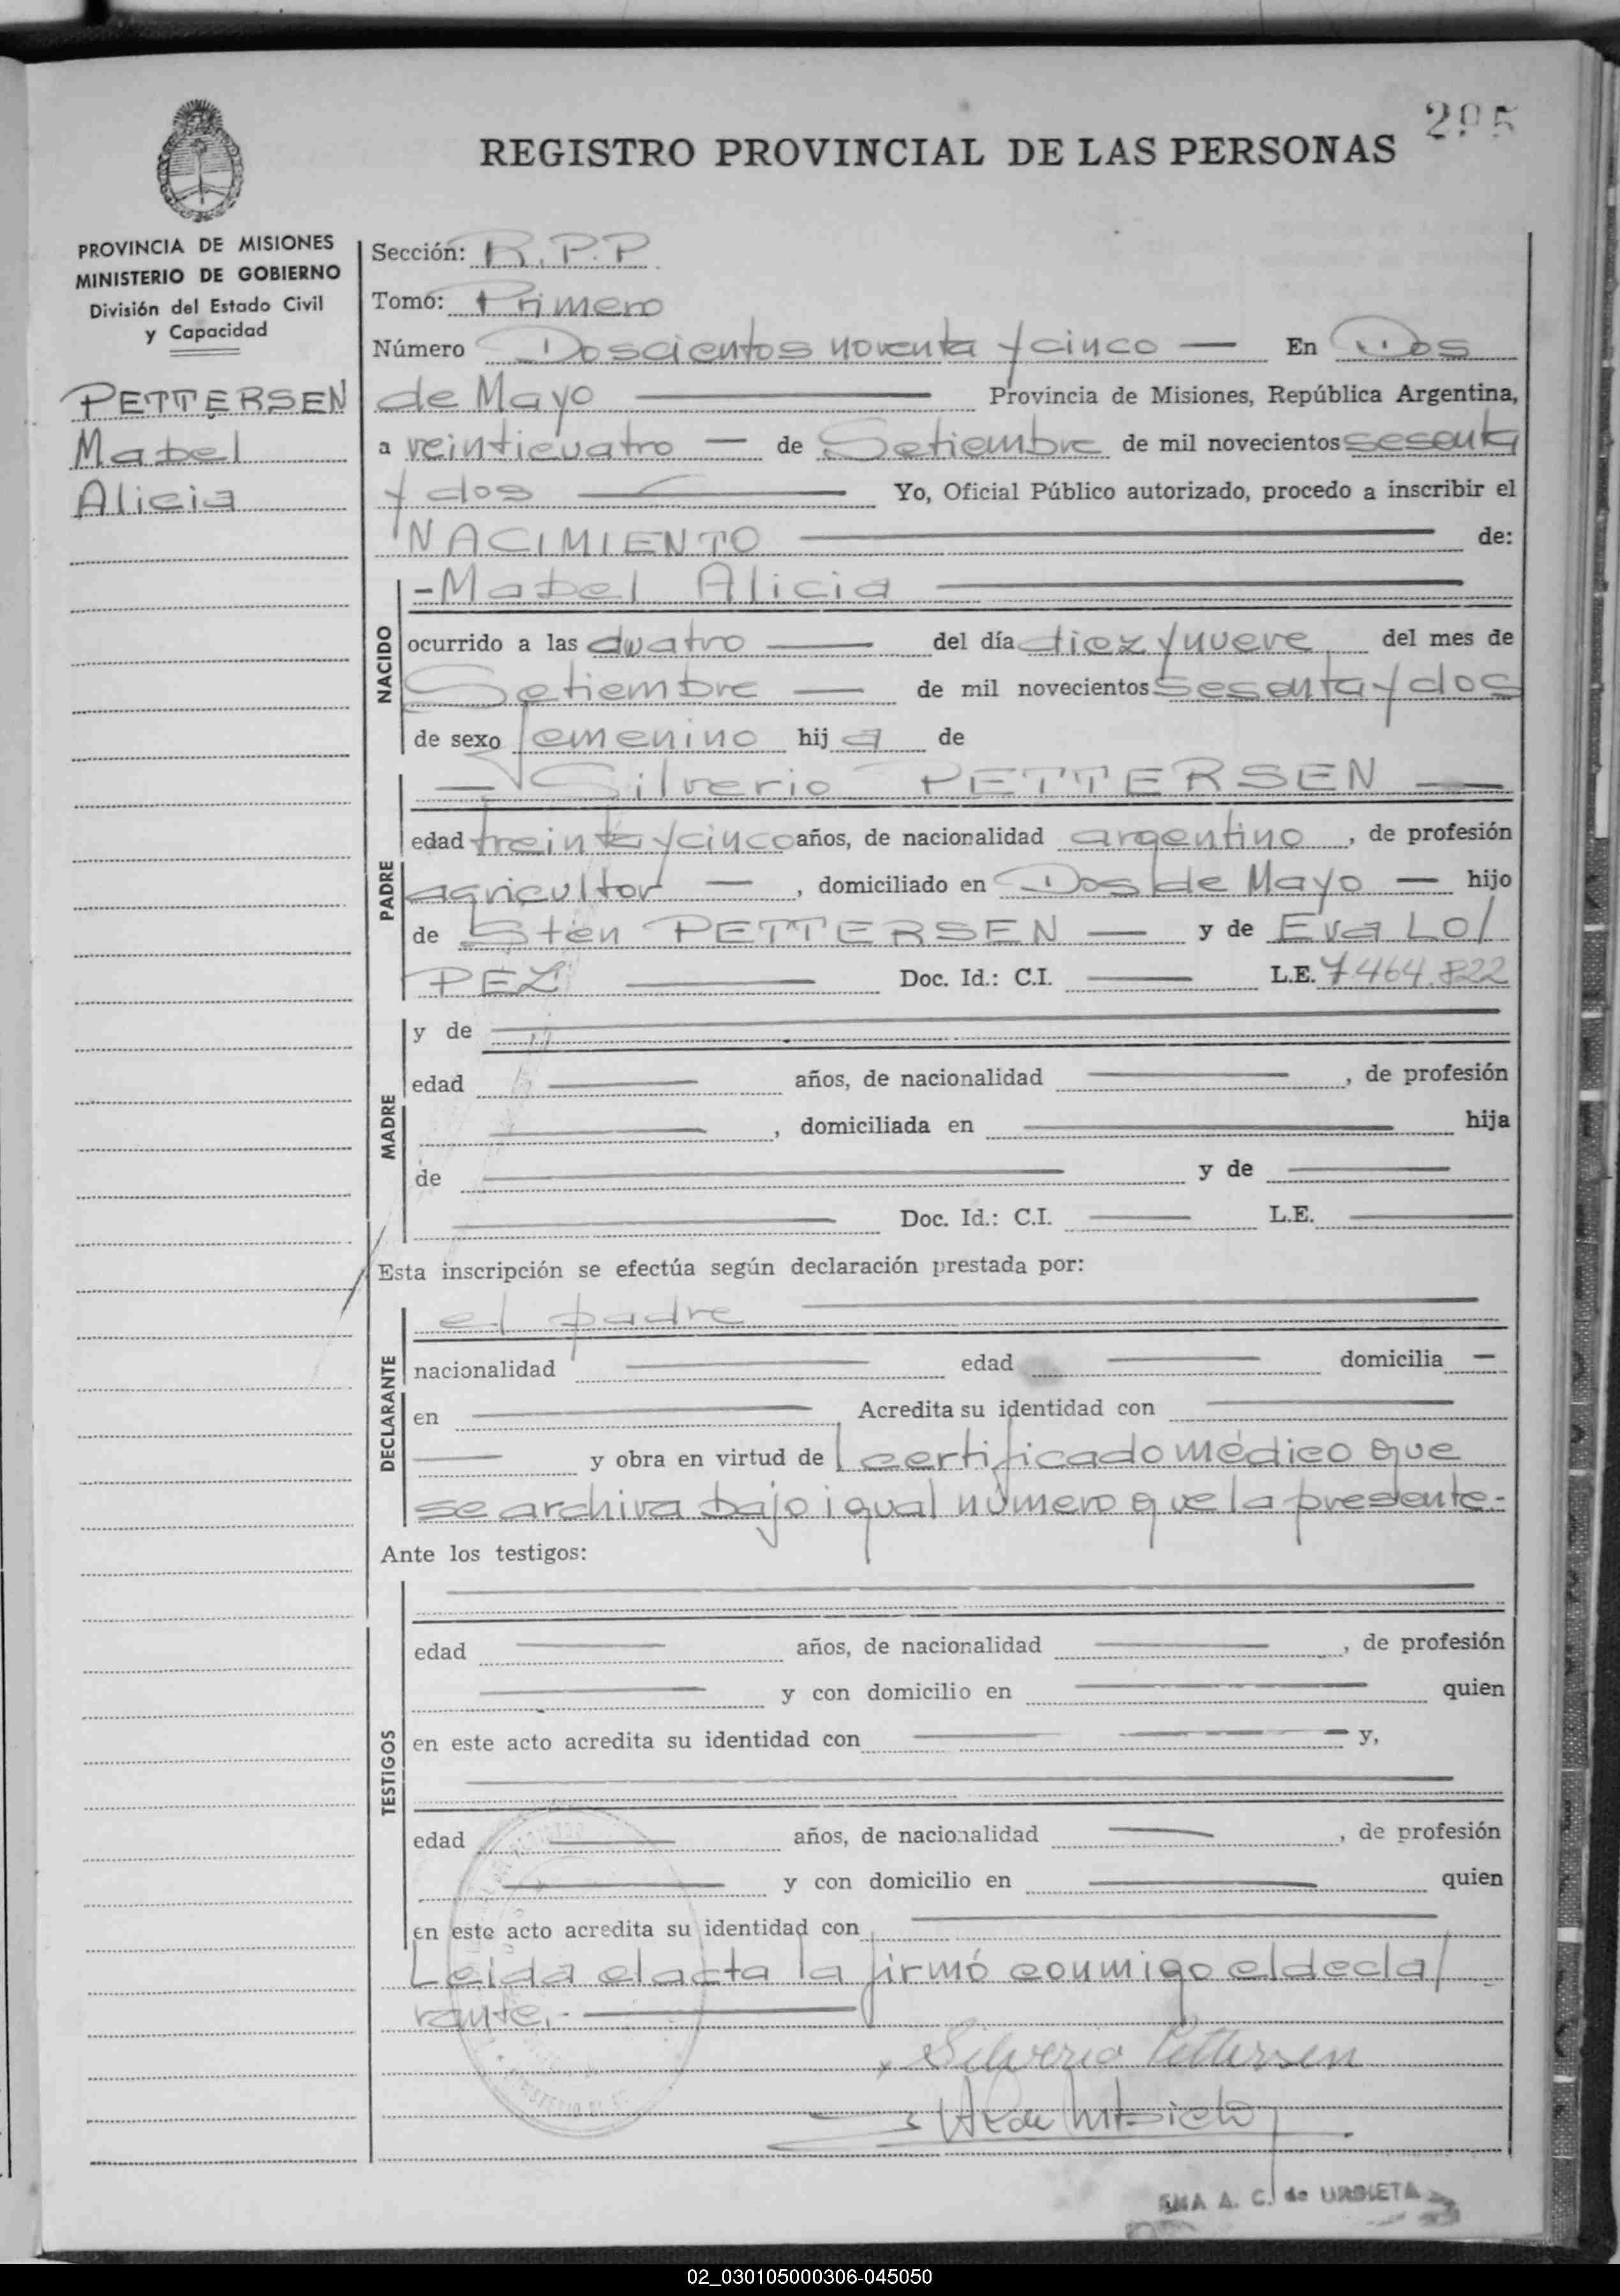 295
REGISTRO PROVINCIAL DE LAS PERSONAS
PROVINCIA DE MISIONES
MINISTERIO DE GOBIERNO
División del Estado Civil
y Capacidad
PETTERSEN
Mabel
Alicia
Sección: R.P.P.
Tomo: Primero
Número Doscientos noventa y cinco — En Dos
de Mayo — Provincia de Misiones, República Argentina,
a veinticuatro — de Setiembre de mil novecientos sesenta
y dos — Yo, Oficial Público autorizado, procedo a inscribir el
NACIMIENTO — de:
NACIDO
- Mabel Alicia —
ocurrido a las cuatro — del día diez y nueve del mes de
Setiembre — de mil novecientos sesenta y dos
de sexo femenino hija de
PADRE
— Silverio PETTERSEN —
edad treinta y cinco años, de nacionalidad argentino, de profesión
agricultor —, domiciliado en Dos de Mayo — hijo
de Sten PETTERSEN — y de Eva LO/
PEZ — Doc. Id.: C.I. — L.E. 7.464.822
MADRE
y de —
edad — años, de nacionalidad —, de profesión
—, domiciliada en — hija
de — y de —
— Doc. Id.: C.I. — L.E. —
Esta inscripción se efectúa según declaración prestada por:
DECLARANTE
el padre —
nacionalidad — edad — domicilia —
en — Acredita su identidad con —
— y obra en virtud de l certificado médico que
se archiva bajo igual número que la presente.-
Ante los testigos:
TESTIGOS
—
edad — años, de nacionalidad —, de profesión
— y con domicilio en — quien
en este acto acredita su identidad con — y,
—
edad — años, de nacionalidad —, de profesión
— y con domicilio en — quien
en este acto acredita su identidad con —
Leida el acta la firmó conmigo el decla/
rante.- —
x Silverio Pettersen
A. C. de URBIETA
02_030105000306-045050